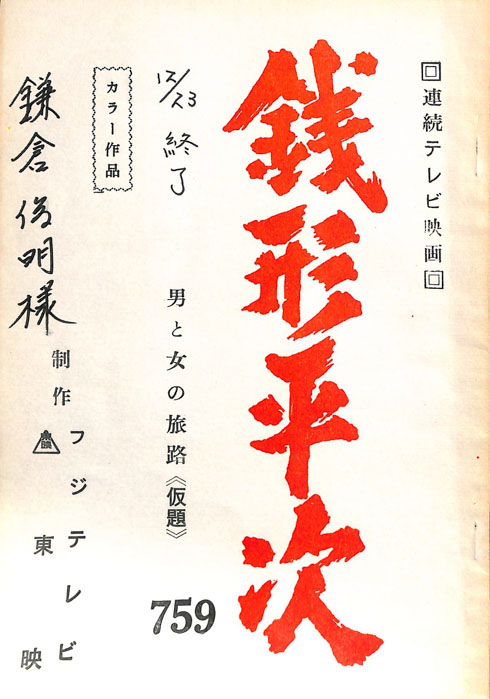 回連続テレビ映画回
銭形平次
12/23 終了
男と女の旅路《仮題》
759
カラー作品
制作
フジテレビ
東映
鎌倉俊明様